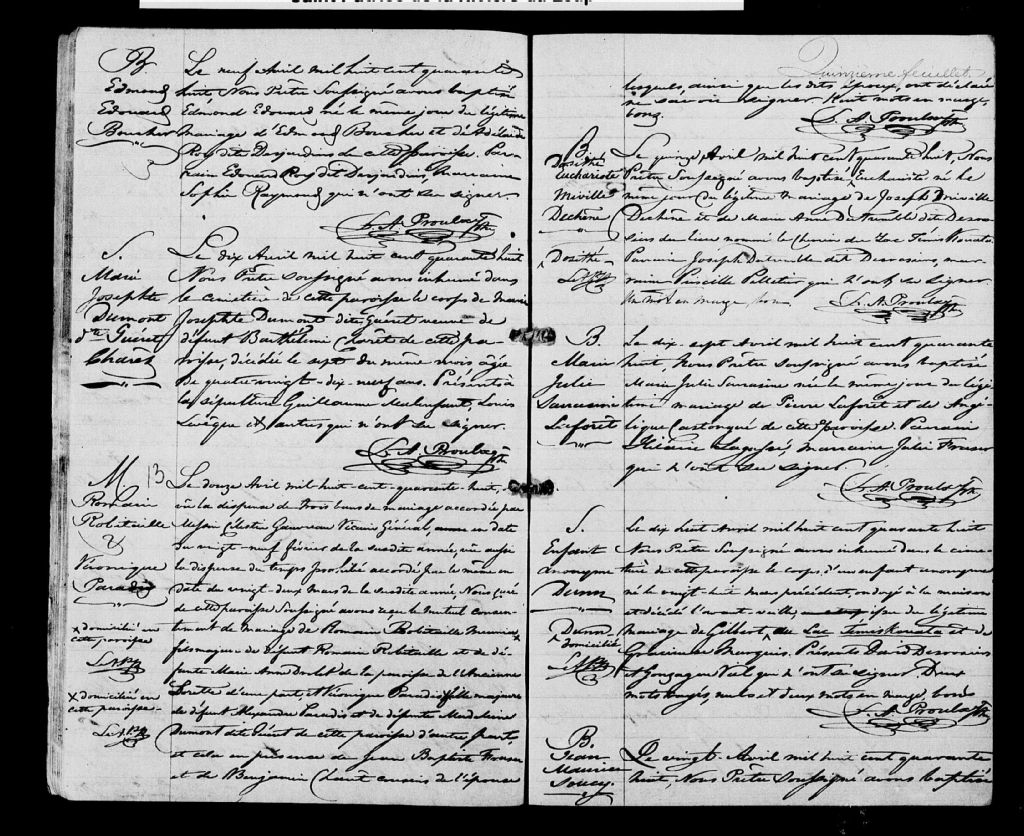 Saint Patrice de la Rivière du Loup
B.
Edmond
Edouard
Boucher
Le neuf Avril mil huit cent quarante
huit Nous Prêtre Soussigné avons baptisé
Edmond Edouard né le même jour du légitime
mariage d'Edmond Boucher et d'Adélaïde
Roy dit Desjardins de cette paroisse. Par-
rain Edouard Roy dit Desjardins Marraine
Sophie Raymond qui n'ont su signer.
L. A. Proulx Ptr
S.
Marie
Josephte
Dumont
dte Guéret
Charet
Le dix Avril mil huit cent quarante huit
Nous Prêtre soussigné avons inhumé dans
le cimetière de cette paroisse le corps de Marie
Josephte Dumont dite Guéret veuve de
défunt Barthélemi Charêt de cette pa-
roisse, décédée le sept du même mois âgée
de quatre vingt-dix-neuf ans. Présents à
la sépulture Guillaume Malenfant, Louis
Levêque et autres qui n'ont su signer.
L. A. Proulx Ptr
M 13
Romain
Robitaille
&
Véronique
Paradis
x domicilié en
cette paroisse
x domiciliée en
cette paroisse
Le douze Avril mil huit-cent-quarante-huit,
vu la dispense de trois bans de mariage accordée par
Messire Célestin Gauvreau Vicaire Général, en date
du vingt-neuf février de la susdite année, vu aussi
la dispense du temps prohibé accordée par le même en
date du vingt-deux Mars de la susdite année, Nous Curé
de cette paroisse Soussigné avons reçu le mutuel consen-
tement de mariage de Romain Robitaille Meunier x
fils majeur de défunt Romain Robitaille et de dé-
funte Marie Ann Drolet de la paroisse de l'Ancienne
Lorette d'une part, et Véronique Paradis x fille majeure
de défunt Alexandre Paradis et de défunte Madeleine
Dumont dit Guéret de cette paroisse d'autre part,
et cela en présence de Jean Baptiste
et de Benjamin Charet cousin de l'épouse
Quinzième feuillet.
lesquels, ainsi que les dits époux, ont déclaré
ne savoir signer. Huit mots en marge
bons.
L. A. Proulx Ptr
B.
Dosithé
Euchariste
Miville
Dechêne
^ Dosithé
Le quinze Avril mil huit cent quarante huit, Nous
Prêtre Soussigné avons baptisé ^ Euchariste né le
même jour du légitime mariage de Joseph Miville
Dechêne et de Marie Anne dit Desro-
siers du lieu nommé le Chemin du Lac Témiskouata.
Parrain Joseph dit Desrosiers, mar-
raine Priscille Pelletier qui n'ont su signer.
Un mot en marge bon.
L. A. Proulx Ptr
B.
Marie
Julie
Sarrasine
Laforêt
Le dix-sept Avril mil huit cent quarante
huit, Nous Prêtre Soussigné avons baptisé
Marie Julie Sarrasine née le même jour du légi-
time mariage de Pierre Laforêt et de Angé-
lique Castonguè de cette paroisse. Parrain
Hilaire Lagacé, Marraine Julie
qui n'ont su signer
L. A. Proulx Ptr
S.
Enfant
Anonyme
Dumn
Le dix huit Avril mil huit cent quarante huit
Nous Prêtre Soussigné avons inhumé dans le cime-
tière de cette paroisse le corps d'un enfant anonyme
né le vingt-huit mars précédent, ondoyé à la maison
et décédé l'avant-veille, issu du légitime
mariage de Gilbert ^ du Lac Témiskouata et de
Marquis. Présents David Desrosiers
et Gonzague Viel qui n'ont su signer. Deux
mots rayés, nuls et deux mots en marge, bons
L. A. Proulx Ptr
B.
Jean
Maurice
Soucy.
Le vingt Avril mil huit cent quarante
huit, Nous Prêtre Soussigné avons baptisé